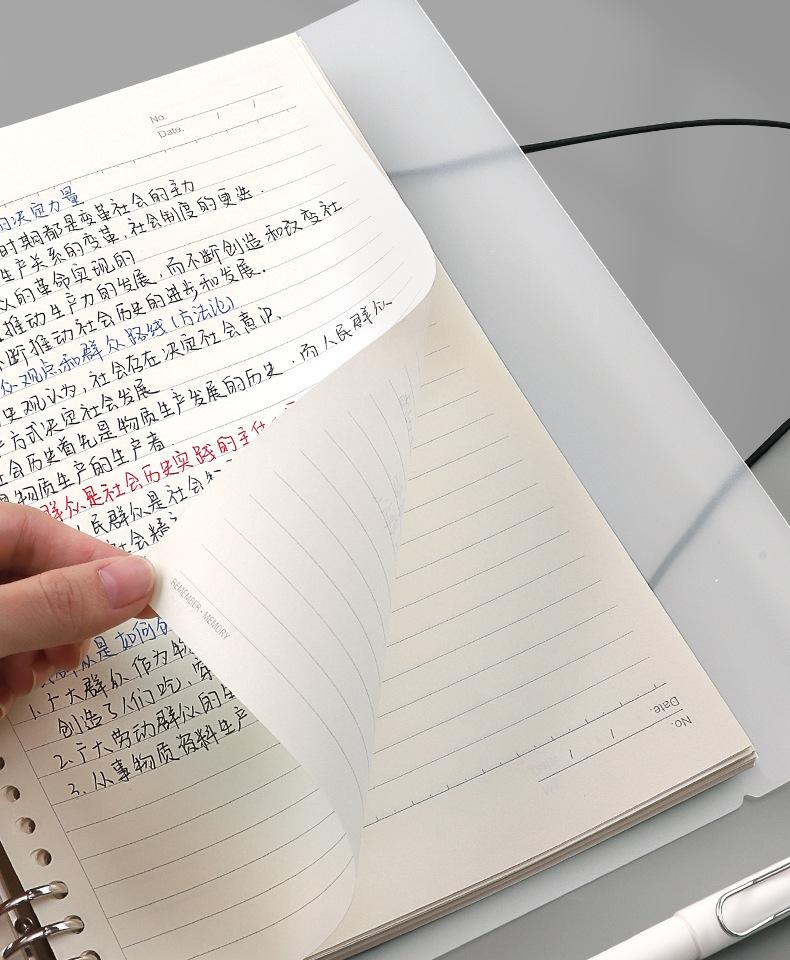 No.
Date. / /
的决定力量
时期都是变革社会的主力
生产关系的变革,社会制度的更迭.
众的革命实现的
推动生产力的发展,而不断创造和改变社
断推动社会历史的进步和发展.
众观点和群众路线(方法论)
史观认为,社会存在决定社会意识.
产方式决定社会发展
社会历史首先是物质生产发展的历史,而人民群众
是物质生产的生产者.
群众是社会历史实践的主体
人民群众是社会
社会精
REMEMBER·MEMORY
群众是如何创
1.广大群众作为物
创造了人们吃、穿
2.广大劳动群众的生
3.从事物质资料生产
Date.
No. / /